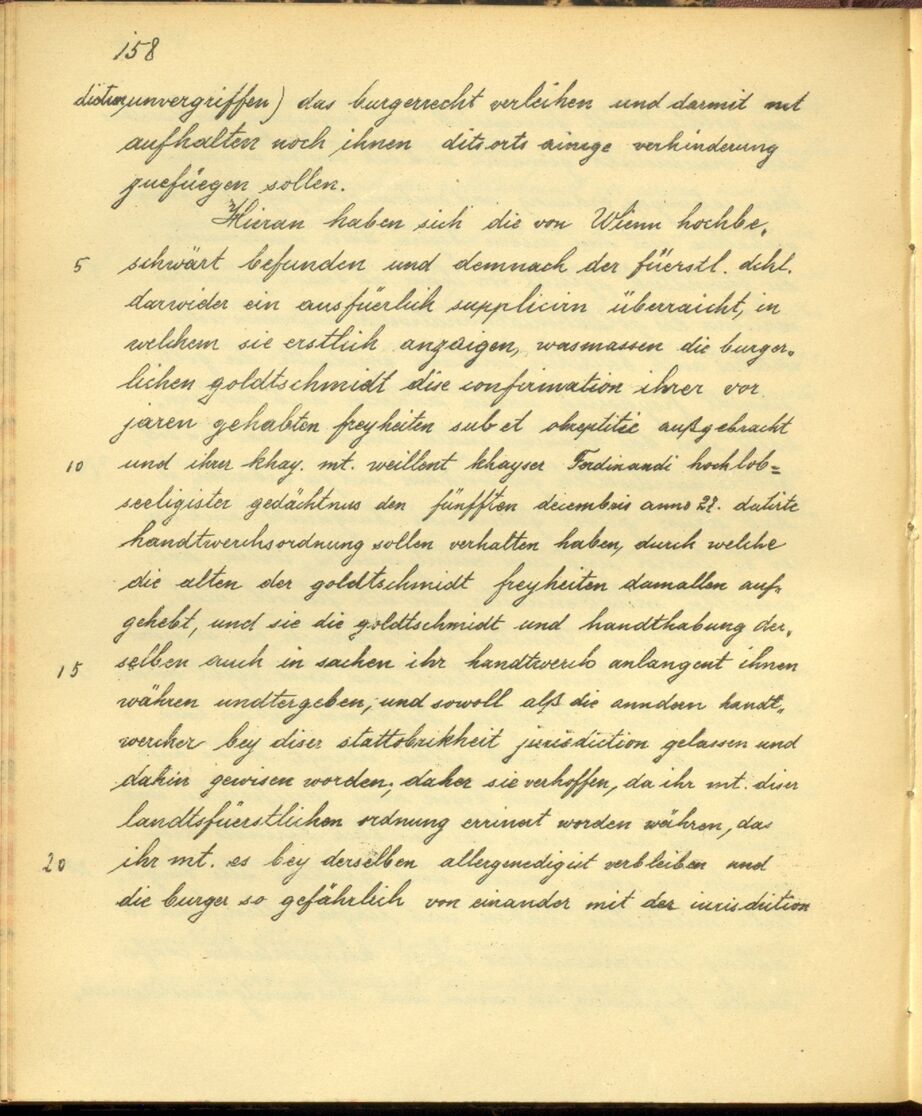 158
diction unvergriffen) das burgerrecht verleihen und darmit nit
aufhalten noch ihnen ditsorts ainige verhinderung
zuefüegen sollen.
Hieran haben sich die von Wienn hochbe„
5 schwärt befunden und demnach der füerstl. dchl.
darwider ein ausfüerlich supplicirn überraicht, in
welchem sie erstlich anzaigen, wasmassen die burger„
lichen goldtschmidt dise confirmation ihrer vor
jaren gehabten freyheiten sub et obreptitie außgebracht
10 und ihrer khay. mt. weillent khayser Ferdinandi hochlob=
seeligister gedächtnus den fünfften decembris anno 27. datirte
handtwerchsordnung sollen verhalten haben, durch welche
die alten der goldtschmidt freyheiten damallen auf„
gehebt, und sie die goldtschmidt und handthabung der„
15 selben auch in sachen ihr handtwerch anlangent ihnen
währen undtergeben, und sowoll alß die anndern handt„
wercher bey diser stattobrikheit jurisdiction gelassen und
dahin gewisen worden, daher sie verhoffen, da ihr mt. diser
landtsfüerstlichen ordnung errinert worden währen, das
20 ihr mt. es bey derselben allergenedigist verbleiben und
die burger so gefährlich von einander mit der iurisdiction